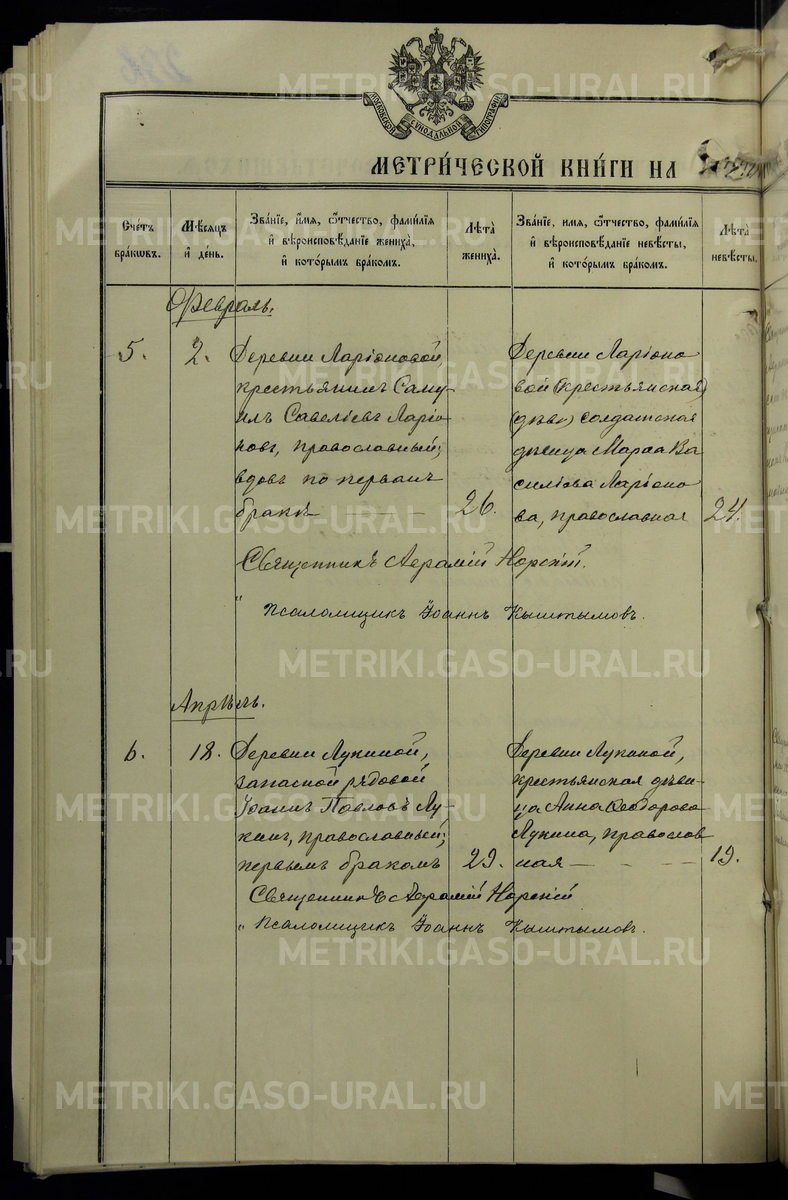 МОСКОВСКОЙ СѴНОДАЛЬНОЙ ТИПОГРАФІИ
МЕТРИ́ЧЕСКОЙ КНИ́ГИ НА
Сче́тъ бра́кѡвъ.
Мѣ́сяцъ и҆ де́нь.
Зва́нїе, и҆́мя, ѻ҆́тчество, фамилїя
и҆ вѣроисповѣ́данїе жениха̀,
и҆ кото́рымъ бра́комъ.
Лѣта̀ жениха̀.
Зва́нїе, и҆́мя, ѻ҆́тчество, фамилїя
и҆ вѣроисповѣ́данїе невѣ́сты,
и҆ кото́рымъ бра́комъ.
Лѣта̀ невѣ́сты.
Февраль.
5. 2. Деревни Ларіоновой,
крестьянинъ Саму-
илъ Савеліевъ Ларіо
новъ, православный;
вдовъ по первомъ
бракѣ 26.
Деревни Ларіоно
вой (крестьянская)
(дѣви) солдатская
дѣвица Марѳа Ва
силіева Ларіоно
ва, православная 24.
Священникъ Аврамій Норскій.
" Псаломщикъ Іоаннъ Кыштымовъ.
Апрѣль.
6. 18. Деревни Лукиной,
запасной рядовой
Іоаннъ Павловъ Лу-
кинъ, православный;
первымъ бракомъ 29.
Деревни Лукиной,
крестьянская дѣви-
ца Анна Ѳеодорова
Лукина, православ
ная 19.
Священникъ Аврамій Норскій
" Псаломщикъ Іоаннъ Кыштымовъ.
METRIKI.GASO-URAL.RU